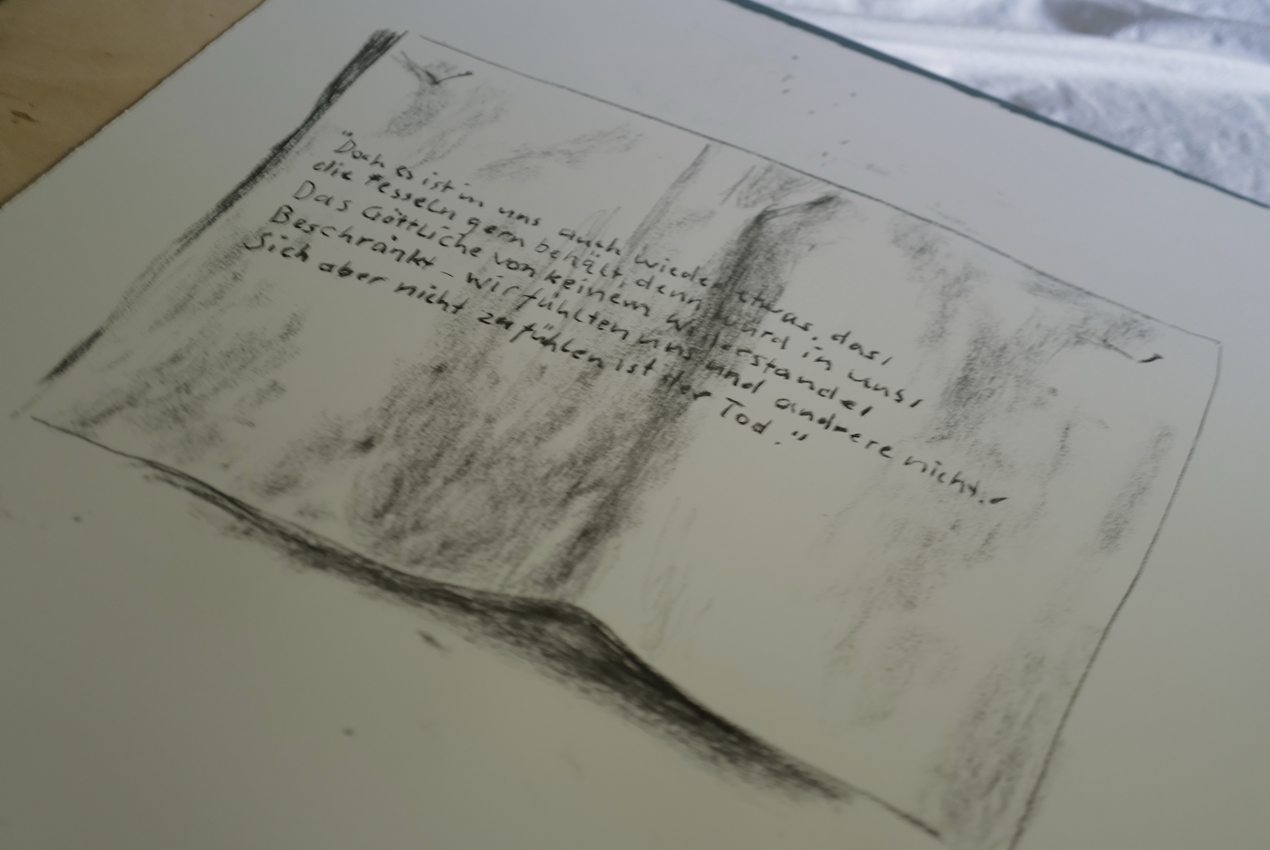 "Doch es ist in uns auch wieder etwas, das,
die Fesseln gern behält, denn würd in uns,
Das Göttliche von keinem Widerstande,
Beschränkt - wir fühlten uns und andrere nicht.
Sich aber nicht zu fühlen ist der Tod."